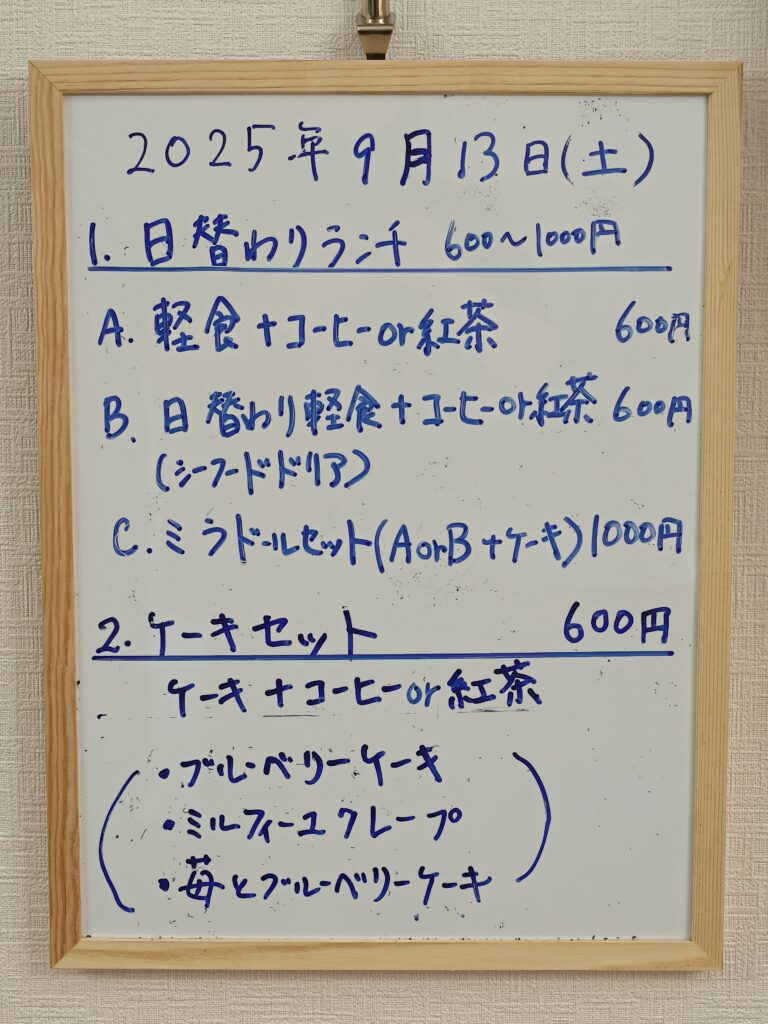 2025年9月13日(土)
1. 日替わりランチ 600〜1000円
A. 軽食+コーヒーor紅茶 600円
B. 日替わり軽食+コーヒーor紅茶 600円
(シーフードドリア)
C. ミラドールセット(AorB+ケーキ) 1000円
2. ケーキセット 600円
ケーキ+コーヒーor紅茶
・ブルーベリーケーキ
・ミルフィーユクレープ
・苺とブルーベリーケーキ